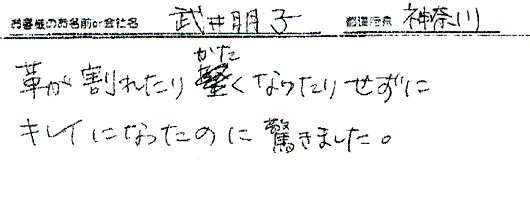 お客様のお名前or会社名 武井朋子 都道府県 神奈川
かた
革が割れたり堅くなったりせずに
キレイになったのに驚きました。